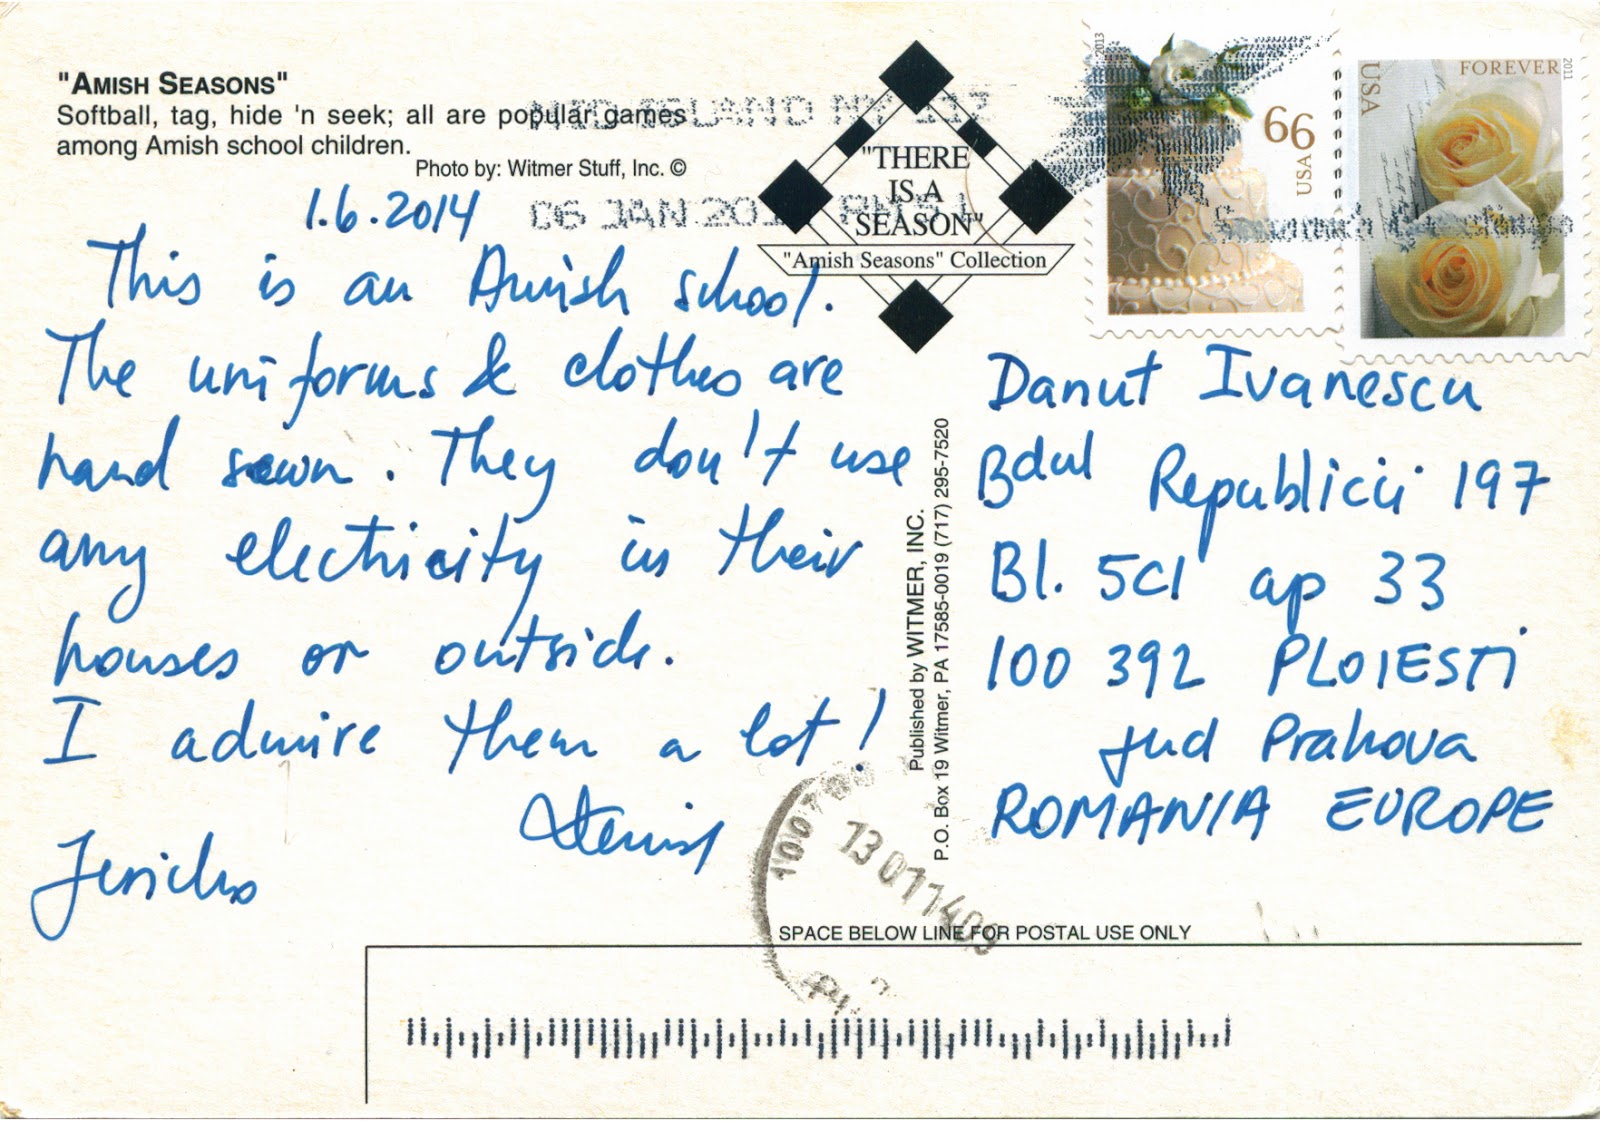 "AMISH SEASONS"
Softball, tag, hide 'n seek; all are popular games
among Amish school children.
Photo by: Witmer Stuff, Inc. ©
MID-ISLAND NY
06 JAN
"THERE
IS A
SEASON"
"Amish Seasons" Collection
2013
66
USA
USA
FOREVER
2011
1.6.2014
This is an Amish school.
The uniforms & clothes are
hand sewn. They don't use
any electricity in their
houses or outside.
I admire them a lot!
Jericho
Published by WITMER, INC.
P.O. Box 19 Witmer, PA 17585-0019 (717) 295-7520
Danut Ivanescu
Bdul Republicii 197
Bl. 5C1 ap 33
100 392 PLOIESTI
jud Prahova
ROMANIA EUROPE
13 01 14 09
SPACE BELOW LINE FOR POSTAL USE ONLY